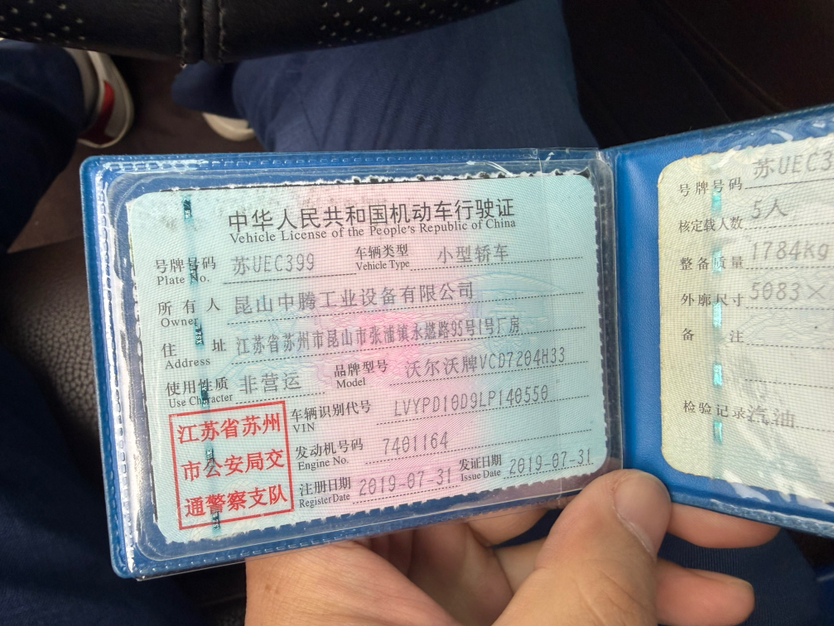 中华人民共和国机动车行驶证
Vehicle License of the People's Republic of China
号牌号码 苏UEC399 车辆类型 小型轿车
Plate No. Vehicle Type
所有人 昆山中腾工业设备有限公司
Owner
住址 江苏省苏州市昆山市张浦镇永燃路95号1号厂房
Address
使用性质 非营运 品牌型号 沃尔沃牌VCD7204H33
Use Character Model
江苏省苏州
市公安局交
通警察支队
车辆识别代号 LVYPD10D9LP140550
VIN
发动机号码 7401164
Engine No.
注册日期 2019-07-31 发证日期 2019-07-31
Register Date Issue Date
号牌号码 苏UEC3
核定载人数 5人
整备质量 1784kg
外廓尺寸 5083×
备注
检验记录 汽油